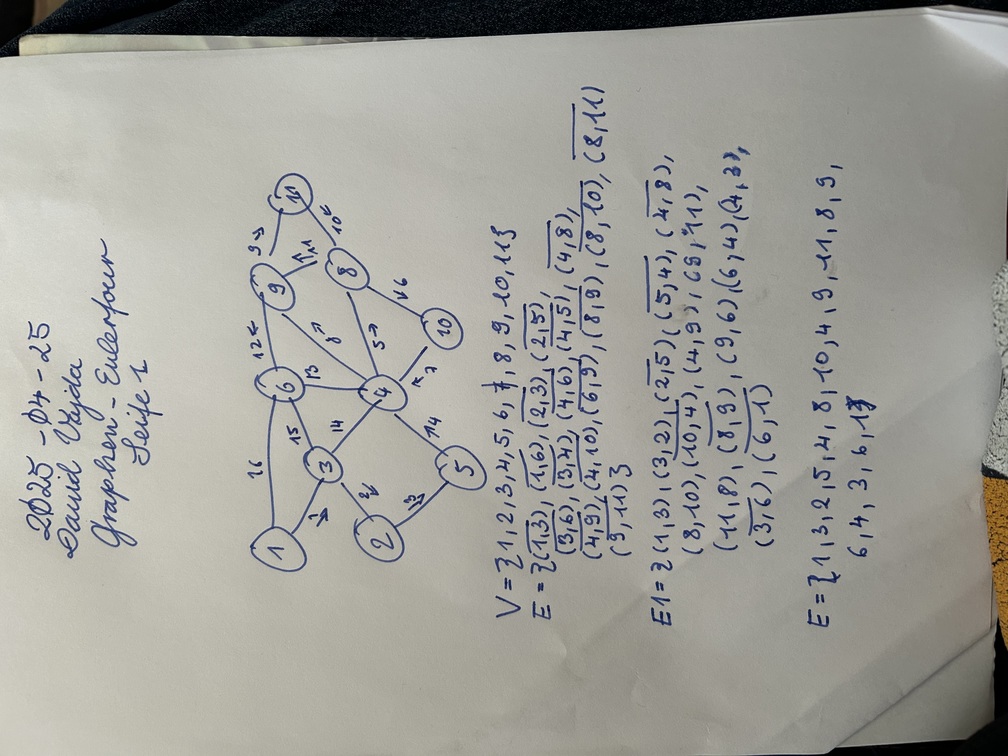 2025-04-25
David Vajda
Graphen-Eulertour
Seite 1
1
3
2
5
6
4
9
8
10
11
16
15
14
13
12
14
8
5
7
6
9
11
10
1
2
3
V = {1,2,3,4,5,6,7,8,9,10,11}
E = {(1,3),(1,6),(2,3),(2,5),
(3,6),(3,4),(4,6),(4,5),(4,8),
(4,9),(4,10),(6,9),(8,9),(8,10),(8,11)
(9,11)}
E1 = {(1,3),(3,2),(2,5),(5,4),(4,8),
(8,10),(10,4),(4,9),(9,11),
(11,8),(8,9),(9,6)(6,4)(4,3),
(3,6),(6,1)
E = {1,3,2,5,4,8,10,4,9,11,8,9,
6,4,3,6,1}